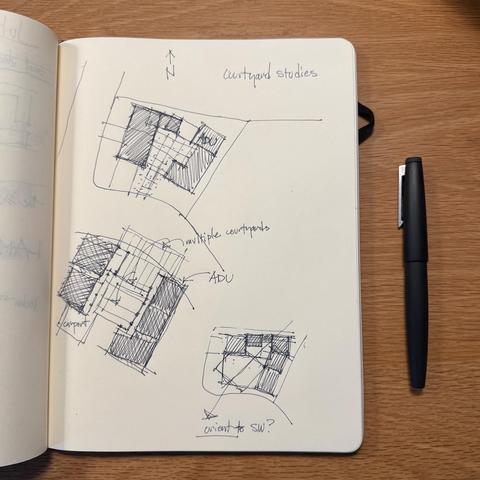 N
courtyard studies
ADU
multiple courtyards
ADU
carport
orient to SW?